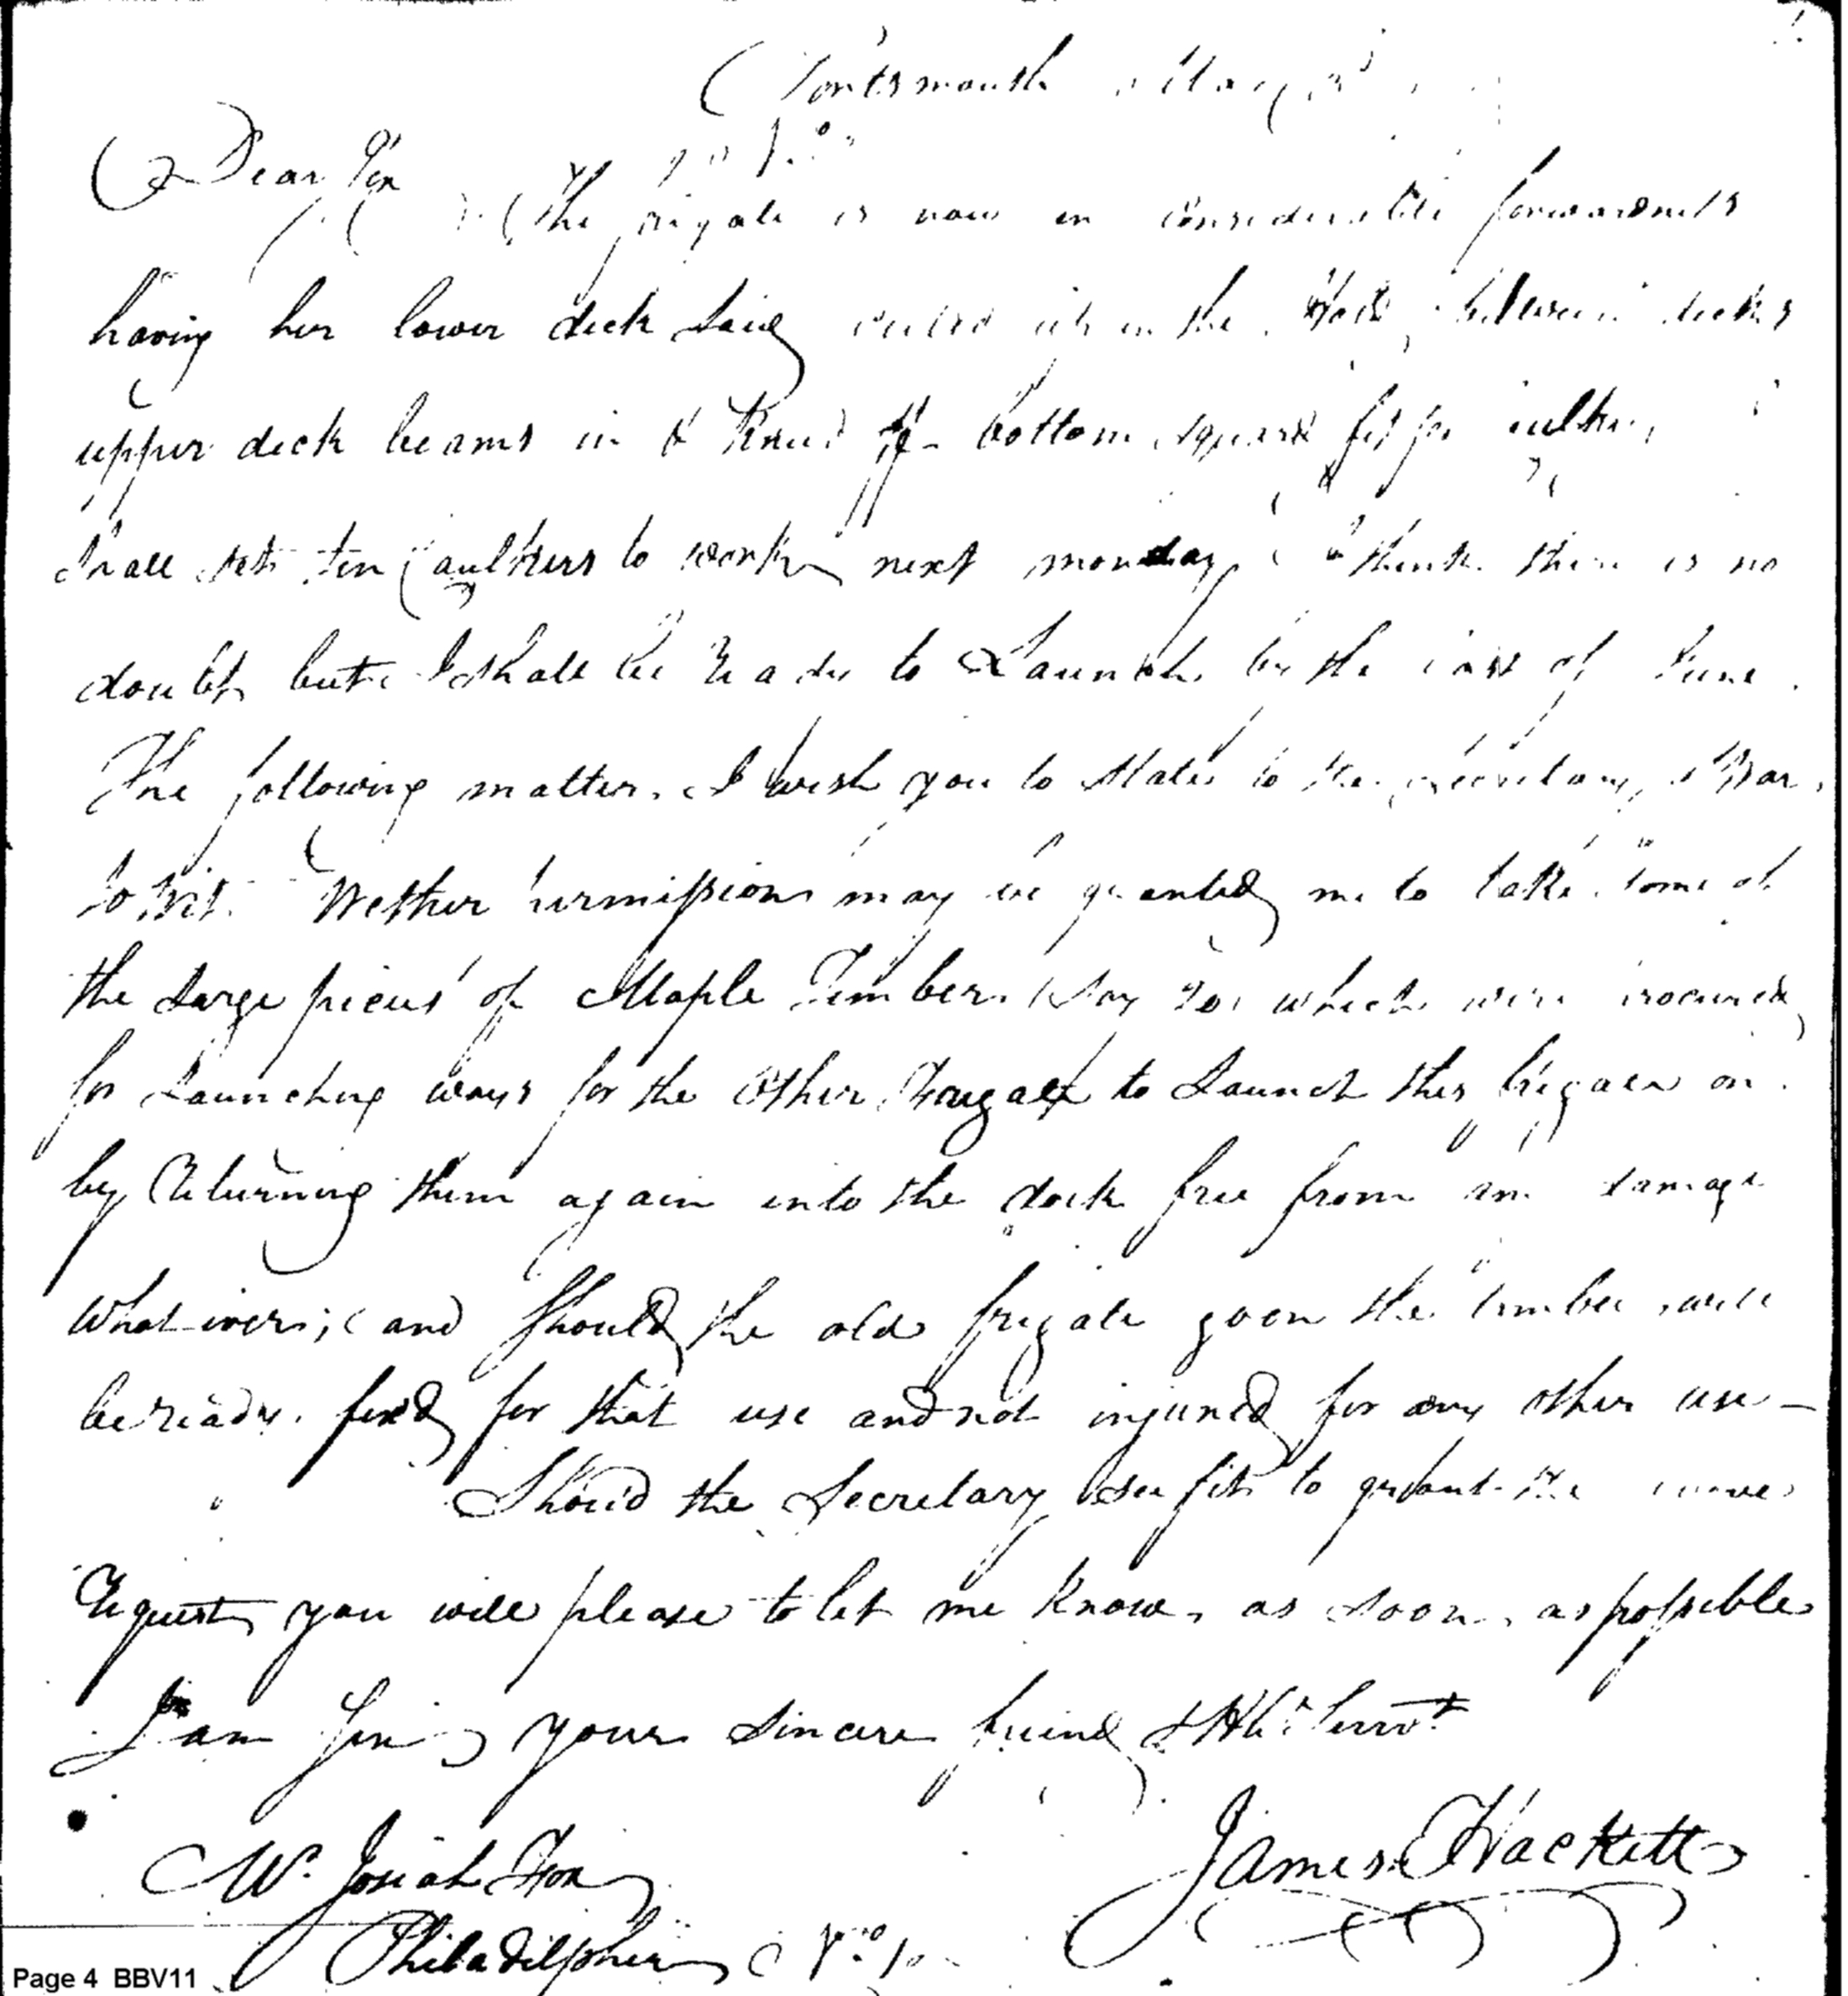 Portsmouth May
Dear Sir
The frigate is now in considerable forwardness
having her lower deck laid in the Hold between decks
upper deck beams in & Kneed bottom squared fit for
Shall set ten Caulkers to work next monday I think there is no
doubt but I shall be Ready to Launch by the last of June
The following matter I wish you to State to the Secretary War
to wit Wether permission may be granted me to take some of
the Large pieces of Maple Timber Say which were procured
for Launching ways for the Other Frigate to Launch this frigate on
by Returning them again into the dock free from any damage
whatever; and Should the old frigate goon the timber will
be ready fixed for that use and not injured for any other use —
Should the Secretary see fit to grant the above
Request you will please to let me know as soon as possible
I am Sir your Sincere friend & Hbe Servt
James Hackett
Mr. Josiah Fox
Philadelphia
Page 4 BBV11